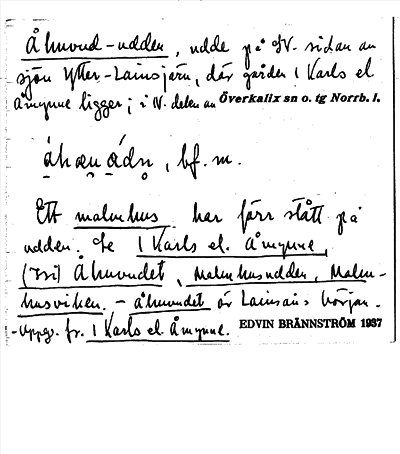 Åhuvud-udden, udde på N. sidan av
sjön Ytter-Lainsjärv, där gården 1 Karls el
Åmynne ligger; i N. delen av Överkalix sn o. tg Norrb. l.
, bf. m.
Ett malmhus har förr stått på
udden. Se 1 Karls el. Åmynne,
Åhuvudet, Malmhusudden, Malm-
husviken. – åhuvudet är Lainsåns början.
-Uppg. fr. 1 Karls el. Åmynne. EDVIN BRÄNNSTRÖM 1937